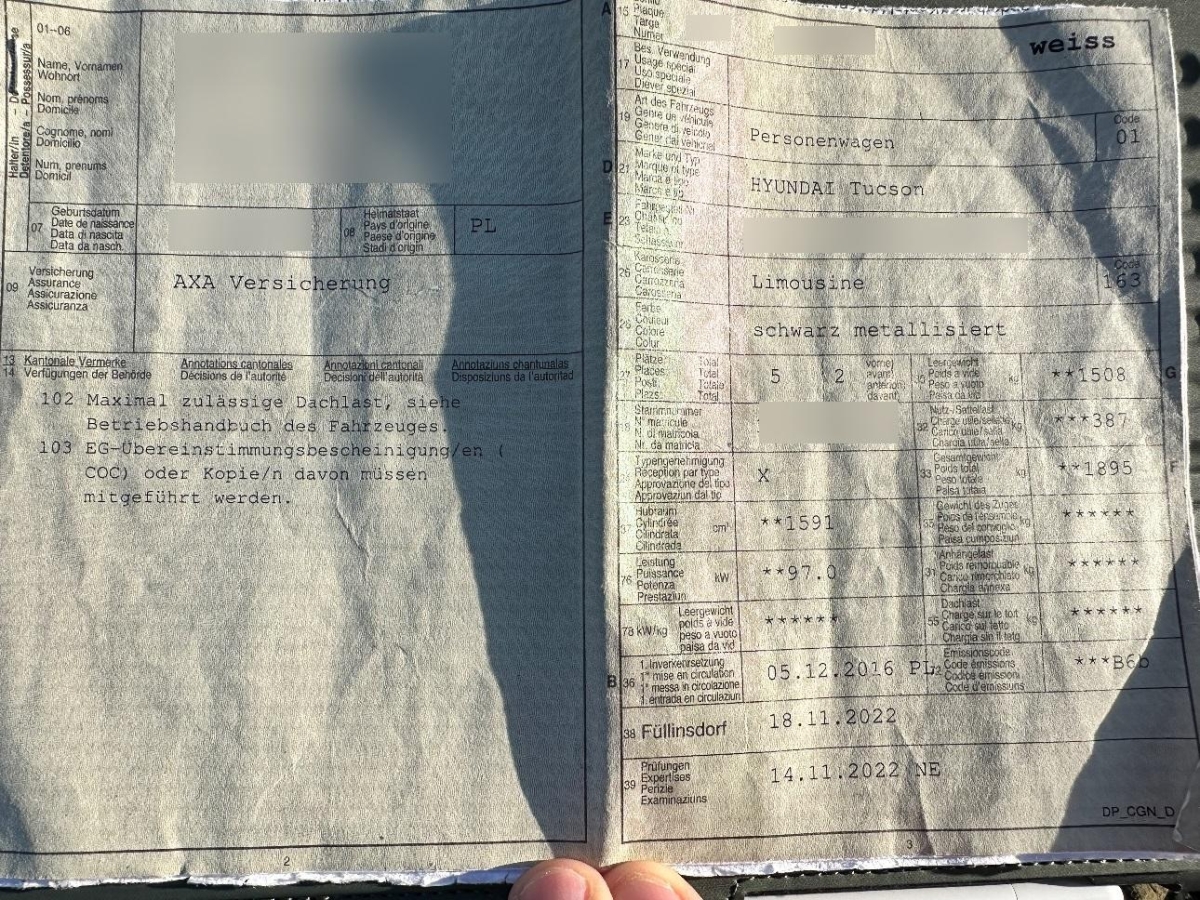 01--06
Halter/in
Detentore/a - Possessur/a
Name, Vornamen
Wohnort
Nom, prénoms
Domicile
Cognome, nomi
Domicilio
Num, prenums
Domicil
07
Geburtsdatum
Date de naissance
Data di nascita
Data da nasch.
08
Heimatstaat
Pays d'origine
Paese d'origine
Stadi d'origin
PL
09
Versicherung
Assurance
Assicurazione
Assicuranza
AXA Versicherung
13 Kantonale Vermerke Annotations cantonales Annotazioni cantonali Annotaziuns chantunalas
14 Verfügungen der Behörde Décisions de l'autorité Decisioni dell'autorità Disposiziuns da l'autoritad
102 Maximal zulässige Dachlast, siehe
Betriebshandbuch des Fahrzeuges.
103 EG-Übereinstimmungsbescheinigung/en (
COC) oder Kopie/n davon müssen
mitgeführt werden.
2
A
15
Plaque
Targa
Numer
weiss
17
Bes. Verwendung
Usage spécial
Uso speciale
Diever spezial
19
Art des Fahrzeugs
Genre de véhicule
Genere di veicolo
Gener dal vehichel
Personenwagen
Code
01
D 21
Marke und Typ
Marque et type
Marca e tipo
Marca e tip
HYUNDAI Tucson
E 23
25
Karosserie
Carrosserie
Carrozzeria
Carossaria
Limousine
Code
163
26
Farbe
Couleur
Colore
Colur
schwarz metallisiert
27
Plätze: Total
Places: Total
Posti: Totale
Plazs: Total
5 2
vorne
avant
anteriori
davant
30
Leergewicht
Poids à vide
Peso a vuoto
Paisa da vid
kg
**1508
G
18
Stammnummer
N° matricule
N. di matricola
Nr. da matricla
32
Nutz-/Sattellast
Charge utile/sellette
Carico utile/sella
Chargia utila/sella
kg
***387
Typengenehmigung
Réception par type
Approvazione del tipo
Approvaziun dal tip
X
33
Gesamtgewicht
Poids total
Peso totale
Paisa totala
kg
**1895
F
37
Hubraum
Cylindrée
Cilindrata
Cilindrada
cm³
**1591
35
Gewicht des Zuges
Poids de l'ensemble
Peso del convoglio
Paisa cumposiziun
kg
******
76
Leistung
Puissance
Potenza
Prestaziun
kW
**97.0
31
Anhängelast
Poids remorquable
Carico rimorchiato
Chargia annexa
kg
******
78 kW/kg
Leergewicht
poids à vide
peso a vuoto
paisa da vid
******
55
Dachlast
Charge sur le toit
Carico sul tetto
Chargia sin il tetg
******
B 36
1. Inverkehrsetzung
1re mise en circulation
1a messa in circolazione
1. entrada en circulaziun
05.12.2016 PL
72
Emissionscode
Code émissions
Codice emissioni
Code d'emissiuns
***B6b
38 Füllinsdorf
18.11.2022
39
Prüfungen
Expertises
Perizie
Examinaziuns
14.11.2022 NE
DP_CGN_D
3